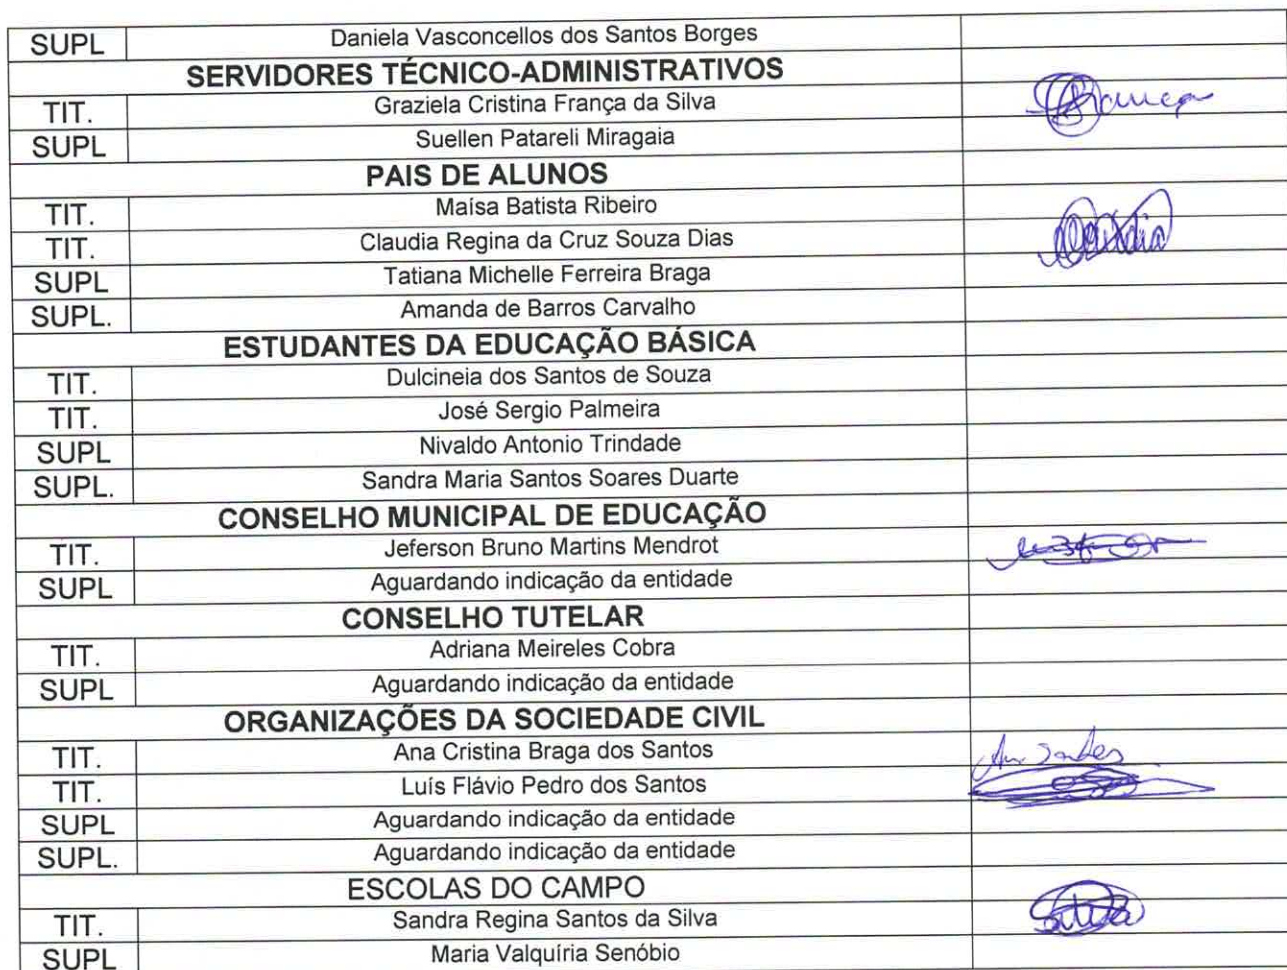 SUPL Daniela Vasconcellos dos Santos Borges
SERVIDORES TÉCNICO-ADMINISTRATIVOS
TIT. Graziela Cristina França da Silva
SUPL Suellen Patareli Miragaia
PAIS DE ALUNOS
TIT. Maísa Batista Ribeiro
TIT. Claudia Regina da Cruz Souza Dias
SUPL Tatiana Michelle Ferreira Braga
SUPL. Amanda de Barros Carvalho
ESTUDANTES DA EDUCAÇÃO BÁSICA
TIT. Dulcineia dos Santos de Souza
TIT. José Sergio Palmeira
SUPL Nivaldo Antonio Trindade
SUPL. Sandra Maria Santos Soares Duarte
CONSELHO MUNICIPAL DE EDUCAÇÃO
TIT. Jeferson Bruno Martins Mendrot
SUPL Aguardando indicação da entidade
CONSELHO TUTELAR
TIT. Adriana Meireles Cobra
SUPL Aguardando indicação da entidade
ORGANIZAÇÕES DA SOCIEDADE CIVIL
TIT. Ana Cristina Braga dos Santos
TIT. Luís Flávio Pedro dos Santos
SUPL Aguardando indicação da entidade
SUPL. Aguardando indicação da entidade
ESCOLAS DO CAMPO
TIT. Sandra Regina Santos da Silva
SUPL Maria Valquíria Senóbio